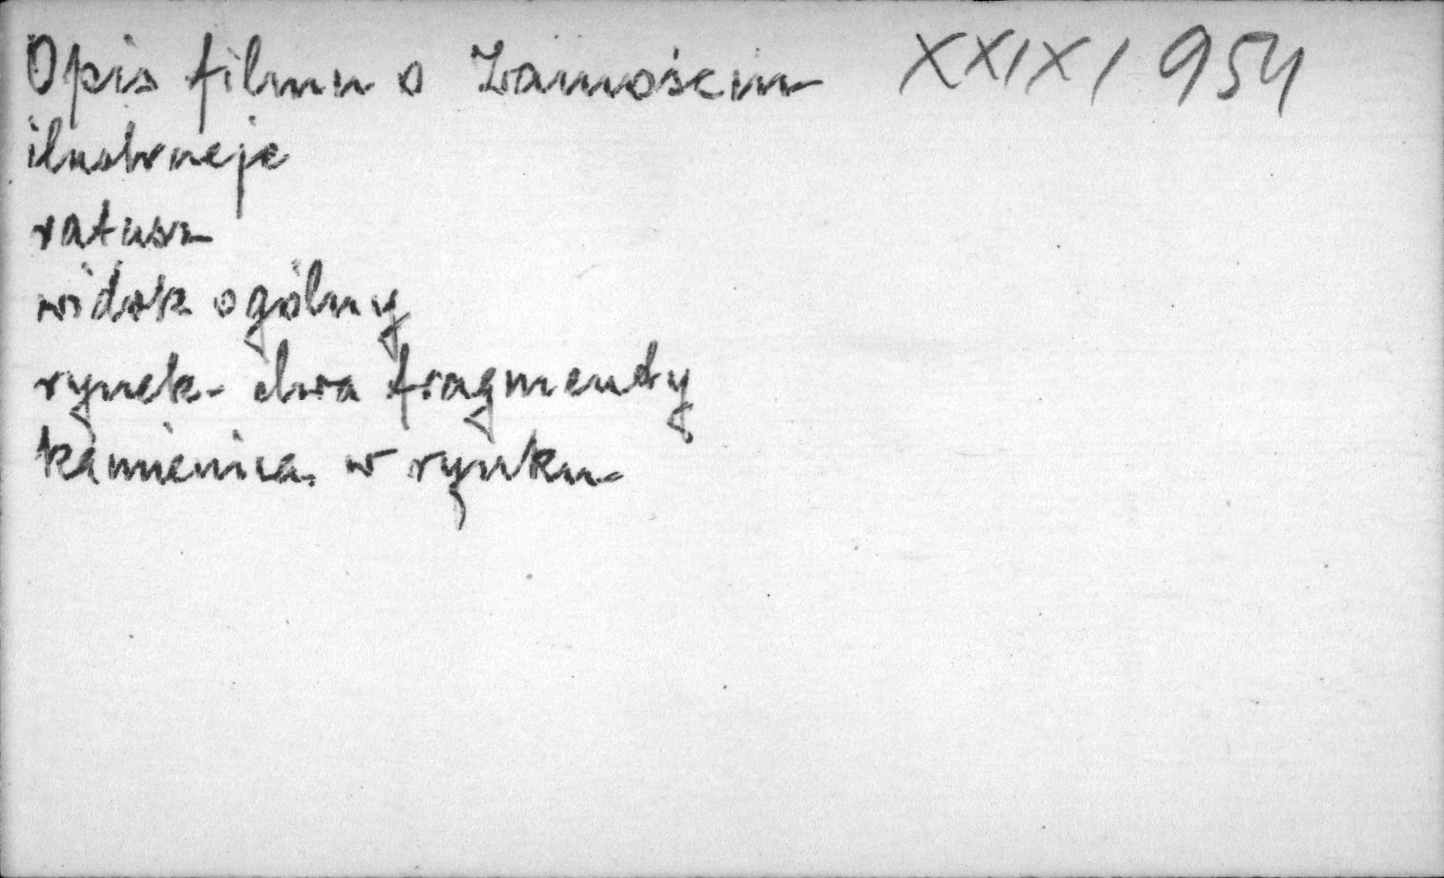 Opis filmu o Zamościu XXIX/954
ilustracje
ratusz
widok ogólny
rynek - dwa fragmenty
kamienica w rynku